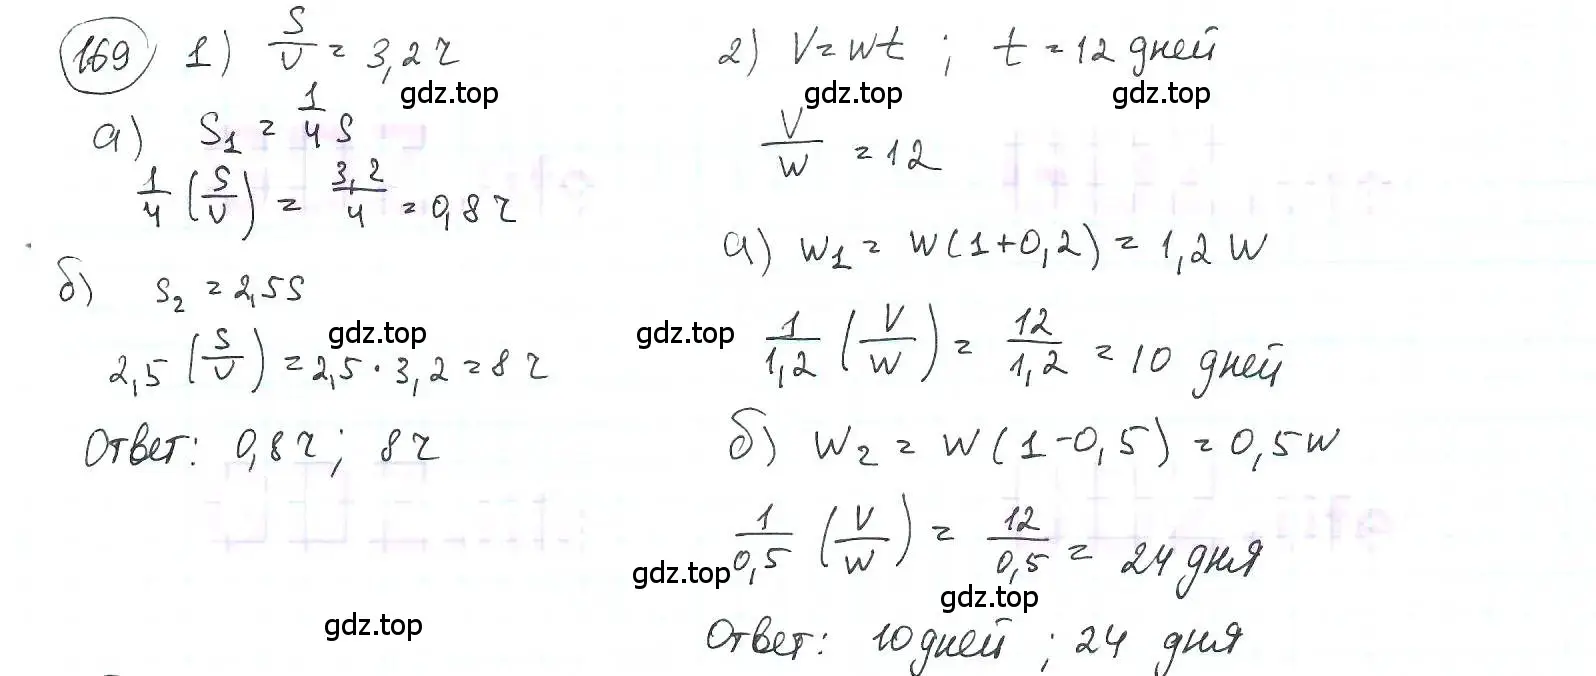 169 1) S/v = 3,2 ч
gdz.top
а) S₁ = 1/4 S
1/4 (S/v) = 3,2/4 = 0,8 ч
б) S₂ = 2,5S
gdz.top
2,5 (S/v) = 2,5 · 3,2 = 8 ч
Ответ: 0,8 ч; 8 ч
gdz.top
2) V = wt ; t = 12 дней
gdz.top gdz.top
V/w = 12
а) w₁ = w(1+0,2) = 1,2 w
gdz.top
1/1,2 (V/w) = 12/1,2 = 10 дней
б) w₂ = w(1-0,5) = 0,5w
1/0,5 (V/w) = 12/0,5 = 24 дня
gdz.top
gdz.top
Ответ: 10 дней ; 24 дня